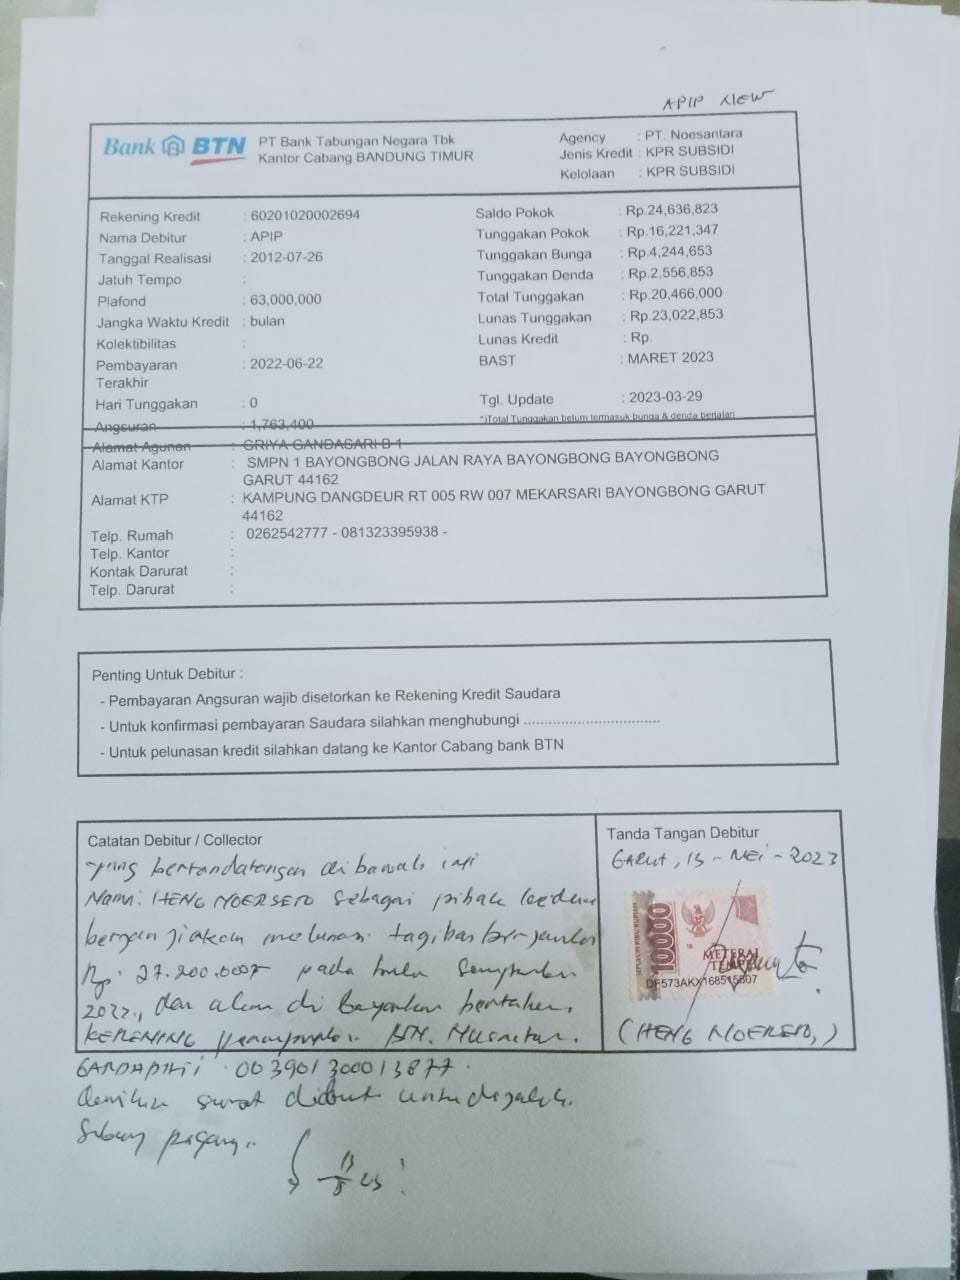 APIP
Bank BTN
PT Bank Tabungan Negara Tbk
Kantor Cabang BANDUNG TIMUR
Agency : PT. Noesantara
Jenis Kredit : KPR SUBSIDI
Kelolaan : KPR SUBSIDI
Rekening Kredit : 60201020002694
Nama Debitur : APIP
Tanggal Realisasi : 2012-07-26
Jatuh Tempo :
Plafond : 63,000,000
Jangka Waktu Kredit : bulan
Kolektibilitas :
Pembayaran Terakhir : 2022-06-22
Hari Tunggakan : 0
Angsuran : 1,763,400
Saldo Pokok : Rp.24,636,823
Tunggakan Pokok : Rp.16,221,347
Tunggakan Bunga : Rp.4,244,653
Tunggakan Denda : Rp.2,556,853
Total Tunggakan : Rp.20,466,000
Lunas Tunggakan : Rp.23,022,853
Lunas Kredit : Rp.
BAST : MARET 2023
Tgl. Update : 2023-03-29
*)Total Tunggakan belum termasuk bunga & denda berjalan
Alamat Agunan : GRIYA GANDASARI B 1
Alamat Kantor : SMPN 1 BAYONGBONG JALAN RAYA BAYONGBONG BAYONGBONG
GARUT 44162
Alamat KTP : KAMPUNG DANGDEUR RT 005 RW 007 MEKARSARI BAYONGBONG GARUT
44162
Telp. Rumah : 0262542777 - 081323395938 -
Telp. Kantor :
Kontak Darurat :
Telp. Darurat :
Penting Untuk Debitur :
- Pembayaran Angsuran wajib disetorkan ke Rekening Kredit Saudara
- Untuk konfirmasi pembayaran Saudara silahkan menghubungi ................................
- Untuk pelunasan kredit silahkan datang ke Kantor Cabang bank BTN
Catatan Debitur / Collector
yang bertandatangan di bawah ini
Nama: HENG NOERSETO sebagai pihak
melunasi tagihan
Rp. 27.200.000 pada bulan
dan akan di bayarkan
REKENING BTN.
0039013000013877.
surat dibuat untuk
Tanda Tangan Debitur
Garut, 15 - Mei - 2023
SEPULUH RIBU RUPIAH
10000
METERAI
TEMPEL
DF573AKX168515607